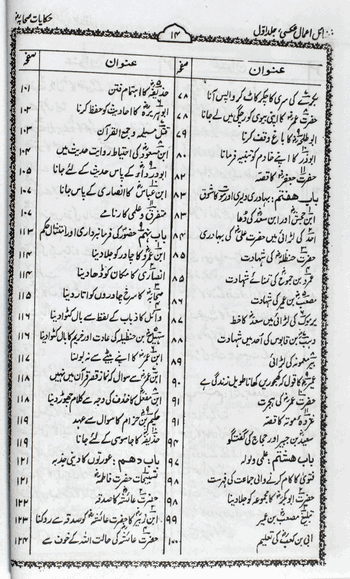 فضائل اعمال عکسی، جلد اول
۱۴
حکایات صحابہؓ
عنوان
صفحہ
بکرے کی سری کا چکر کاٹ کر واپس آنا ۷۸
حضرت عمرؓ کا اپنی بیوی کو زچگی میں لے جانا ۷۸
ابو طلحہؓ کا باغ وقف کرنا ۷۹
ابوذرؓ کا اپنے خادم کو تنبیہ فرمانا ۸۰
حضرت جعفرؓ کا قصہ ۸۲
باب ہفتم: بہادری دلیری اور موت کا شوق ۸۳
ابن جحشؓ اور ابن سعدؓ کی دعا ۸۳
احد کی لڑائی میں حضرت علیؓ کی بہادری ۸۴
حضرت حنظلہؓ کی شہادت ۸۵
عمرو بن جموحؓ کی تمنائے شہادت ۸۵
مصعب بن عمیرؓ کی شہادت ۸۶
یرموک کی لڑائی میں سعدؓ کا خط ۸۷
وہب بن قابوس کی احد میں شہادت ۸۸
بیر معونہ کی لڑائی ۸۹
عمیرؓ کا قول کہ کھجوریں کھانا طویل زندگی ہے ۹۰
حضرت عمرؓ کی ہجرت ۹۱
غزوہ موتہ کا قصہ ۹۱
سعید بن جبیر اور حجاج کی گفتگو ۹۴
باب ہشتم: علمی ولولہ ۹۷
فتویٰ کا کام کرنے والی جماعت کی فہرست ۹۸
حضرت ابوبکرؓ کا مجموعہ کو جلا دینا ۹۸
تبلیغ مصعب بن عمیر ۹۹
ابی بن کعبؓ کی تعلیم ۱۰۰
عنوان
صفحہ
حذیفہؓ کا اہتمام فتن ۱۰۱
ابوہریرہؓ کا احادیث کو حفظ کرنا ۱۰۲
قتل مسیلمہ و جمع القرآن ۱۰۳
ابن مسعودؓ کی احتیاط روایت حدیث میں ۱۰۴
ابودرداءؓ کے پاس حدیث کے لئے جانا ۱۰۵
ابن عباسؓ کا انصاری کے پاس جانا ۱۰۷
متفرق علمی کارنامے ۱۰۷
باب نہم: حضورؐ کی فرمانبرداری اور امتثال حکم ۱۱۳
ابن عمروؓ کا چادر کو جلا دینا ۱۱۴
انصاری کا مکان کو ڈھا دینا ۱۱۴
صحابہؓ کا سرخ چادروں کو اتار دینا ۱۱۵
وائل کا ذباب کے لفظ سے بال کٹوا دینا ۱۱۶
سہیل بن حنظلیہ کی عادت اور خریم کا بال کٹوا دینا ۱۱۶
ابن عمرؓ کا اپنے بیٹے سے نہ بولنا ۱۱۷
ابن عمرؓ سے سوال کہ نماز قصر قرآن میں نہیں ۱۱۸
ابن مغفلؓ کا خذف کی وجہ سے کلام چھوڑ دینا ۱۱۸
حکیم بن حزام کا سوال سے عہد ۱۱۹
حذیفہؓ کا جاسوسی کے لئے جانا ۱۱۹
باب دہم: عورتوں کا دینی جذبہ ۱۲۱
تسبیحات حضرت فاطمہؓ ۱۲۱
حضرت عائشہؓ کا صدقہ ۱۲۲
ابن زبیرؓ کا حضرت عائشہؓ کو صدقہ سے روکنا ۱۲۳
حضرت عائشہؓ کی حالت اللہ کے خوف سے ۱۲۴